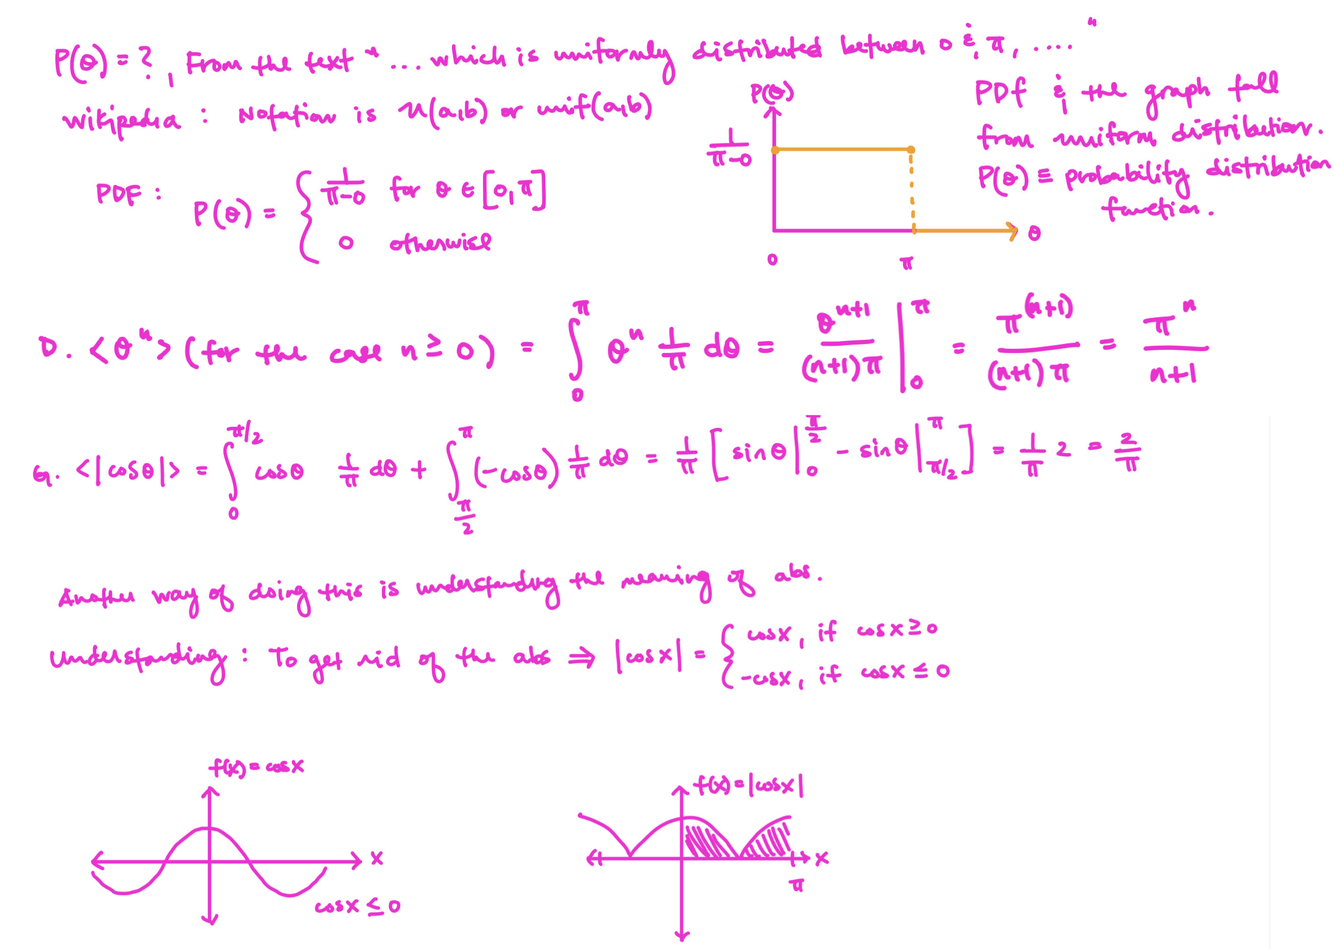 P(θ) = ? , From the text " ... which is uniformly distributed between 0 & π, .... "
Wikipedia : Notation is U(a,b) or unif(a,b)
PDF : P(θ) = { 1/(π-0) for θ ∈ [0, π]
0 otherwise
P(θ)
1/(π-0)
0 π θ
PDF & the graph fall
from uniform distribution.
P(θ) ≡ probability distribution
function.
D. <θ^n> (for the case n ≥ 0) = ∫_0^π θ^n 1/π dθ = θ^(n+1)/((n+1)π) |_0^π = π^(n+1)/((n+1)π) = π^n/(n+1)
G. <|cosθ|> = ∫_0^(π/2) cosθ 1/π dθ + ∫_(π/2)^π (-cosθ) 1/π dθ = 1/π [ sinθ |_0^(π/2) - sinθ |_(π/2)^π ] = 1/π 2 = 2/π
Another way of doing this is understanding the meaning of abs.
Understanding : To get rid of the abs ⇒ |cosx| = { cosx, if cosx ≥ 0
-cosx, if cosx ≤ 0
f(x) = cosx
x
cosx ≤ 0
f(x) = |cosx|
x
π